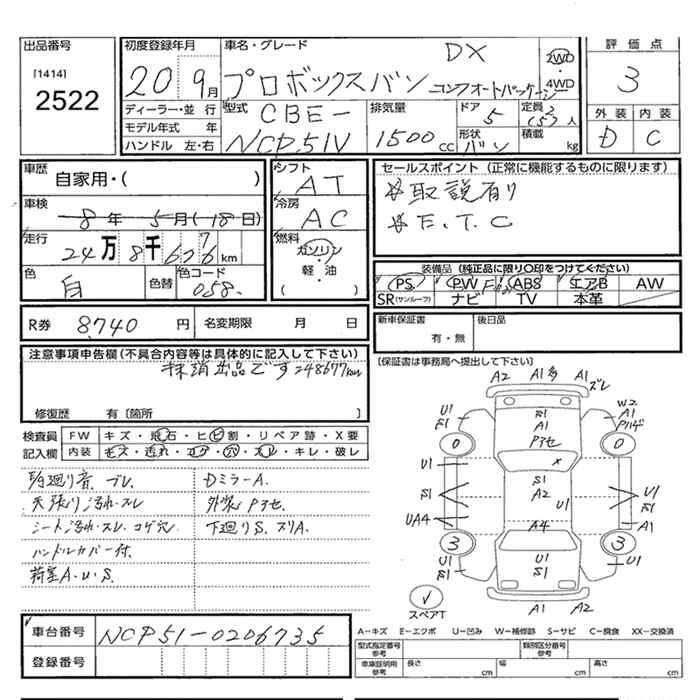 出品番号
[1414]
2522
初度登録年月
20 9月
ディーラー・並 行
モデル年式 年
ハンドル 左・右
車名・グレード
DX
プロボックスバン コンフォートパッケージ
2WD
・
4WD
型式
CBE-
NCP51V
排気量
1500 cc
ドア
5
形状
バン
定員
(5)人
積載
kg
評 価 点
3
外 装 内 装
D C
車歴
自家用・( )
車検
8年 5月(18日)
走行
24万8千677km
色
白
色替
色コード
058
シフト
AT
冷房
AC
燃料
ガソリン
・
軽・油
( )
セールスポイント(正常に機能するものに限ります)
※取説有り
※E.T.C
装備品(純正品に限り〇印をつけてください)
PS PW ABS エアB AW
SR(サンルーフ) ナビ TV 本革
R券 8740 円 名変期限 月 日
新車保証書
有・無
後日品
注意事項申告欄(不具合内容等は具体的に記入して下さい)
抹消出品です 248677km
修復歴 有〔箇所 〕
〔保証書は事務局へ提出して下さい〕
検査員
記入欄
FW キズ・飛石・ヒビ割・リペア跡・X要
内装 キズ・汚れ・コゲ・穴・スレ・キレ・破レ
天張り汚れ・スレ
シート汚れ・スレ、コゲ穴
ハンドルカバー付.
荷室A・U・S.
DミラーA.
外装Pヌケ.
下廻りS.
A2 A1 A1 ズレ
U1 S1 W2 A1
S1
Pヌケ
0 0
×
U1 S1 A2 U1
S1 U1 S1
UA4 A4 A1
3 3
U1 S1 U1 S1 U1
A1 A2
スペアT
A−キズ E−エクボ U−凹み W−補修跡 S−サビ C−腐食 XX−交換済
型式指定番号
参考
類別区分番号
参考
車庫証明用
参考
長さ cm 幅 cm 高さ cm
車台番号 NCP51-0206735
登録番号